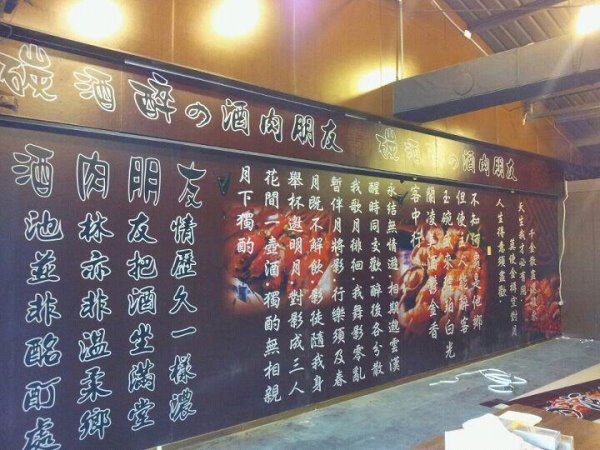 碳酒醉の酒肉朋友
碳酒醉の酒肉朋友
酒池並非酩酊處
肉林亦非溫柔鄉
朋友把酒坐滿堂
友情歷久一樣濃
月下獨酌
花間二壺酒，獨酌無相親
舉杯邀明月，對影成三人
月既不解飲，影徒隨我身
暫伴月將影，行樂須及春
我歌月徘徊，我舞影零亂
醒時同交歡，醉後各分散
永結無情遊，相期邈雲漢
客中行
蘭凌美酒鬱金香
玉碗盛來琥珀光
但使主人能醉客
不知何處是他鄉
人生得意須盡歡
莫使金樽空對月
天生我才必有用
千金散盡還復來